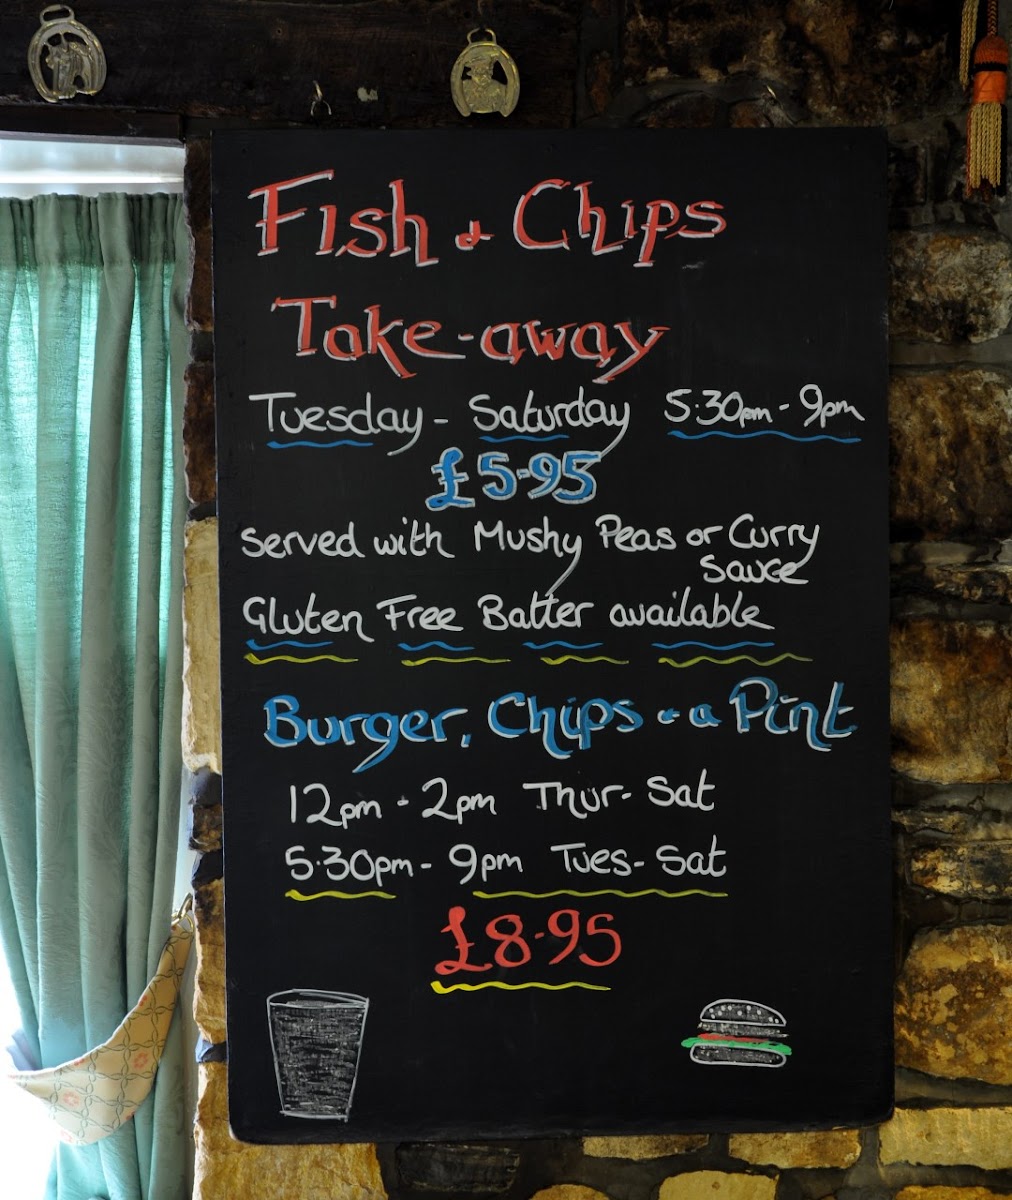 Fish & Chips
Take-away
Tuesday - Saturday 5.30pm - 9pm
£5.95
Served with Mushy Peas or Curry
Sauce
Gluten Free Batter available
Burger, Chips & a Pint
12pm - 2pm Thur- Sat
5.30pm - 9pm Tues- Sat
£8.95